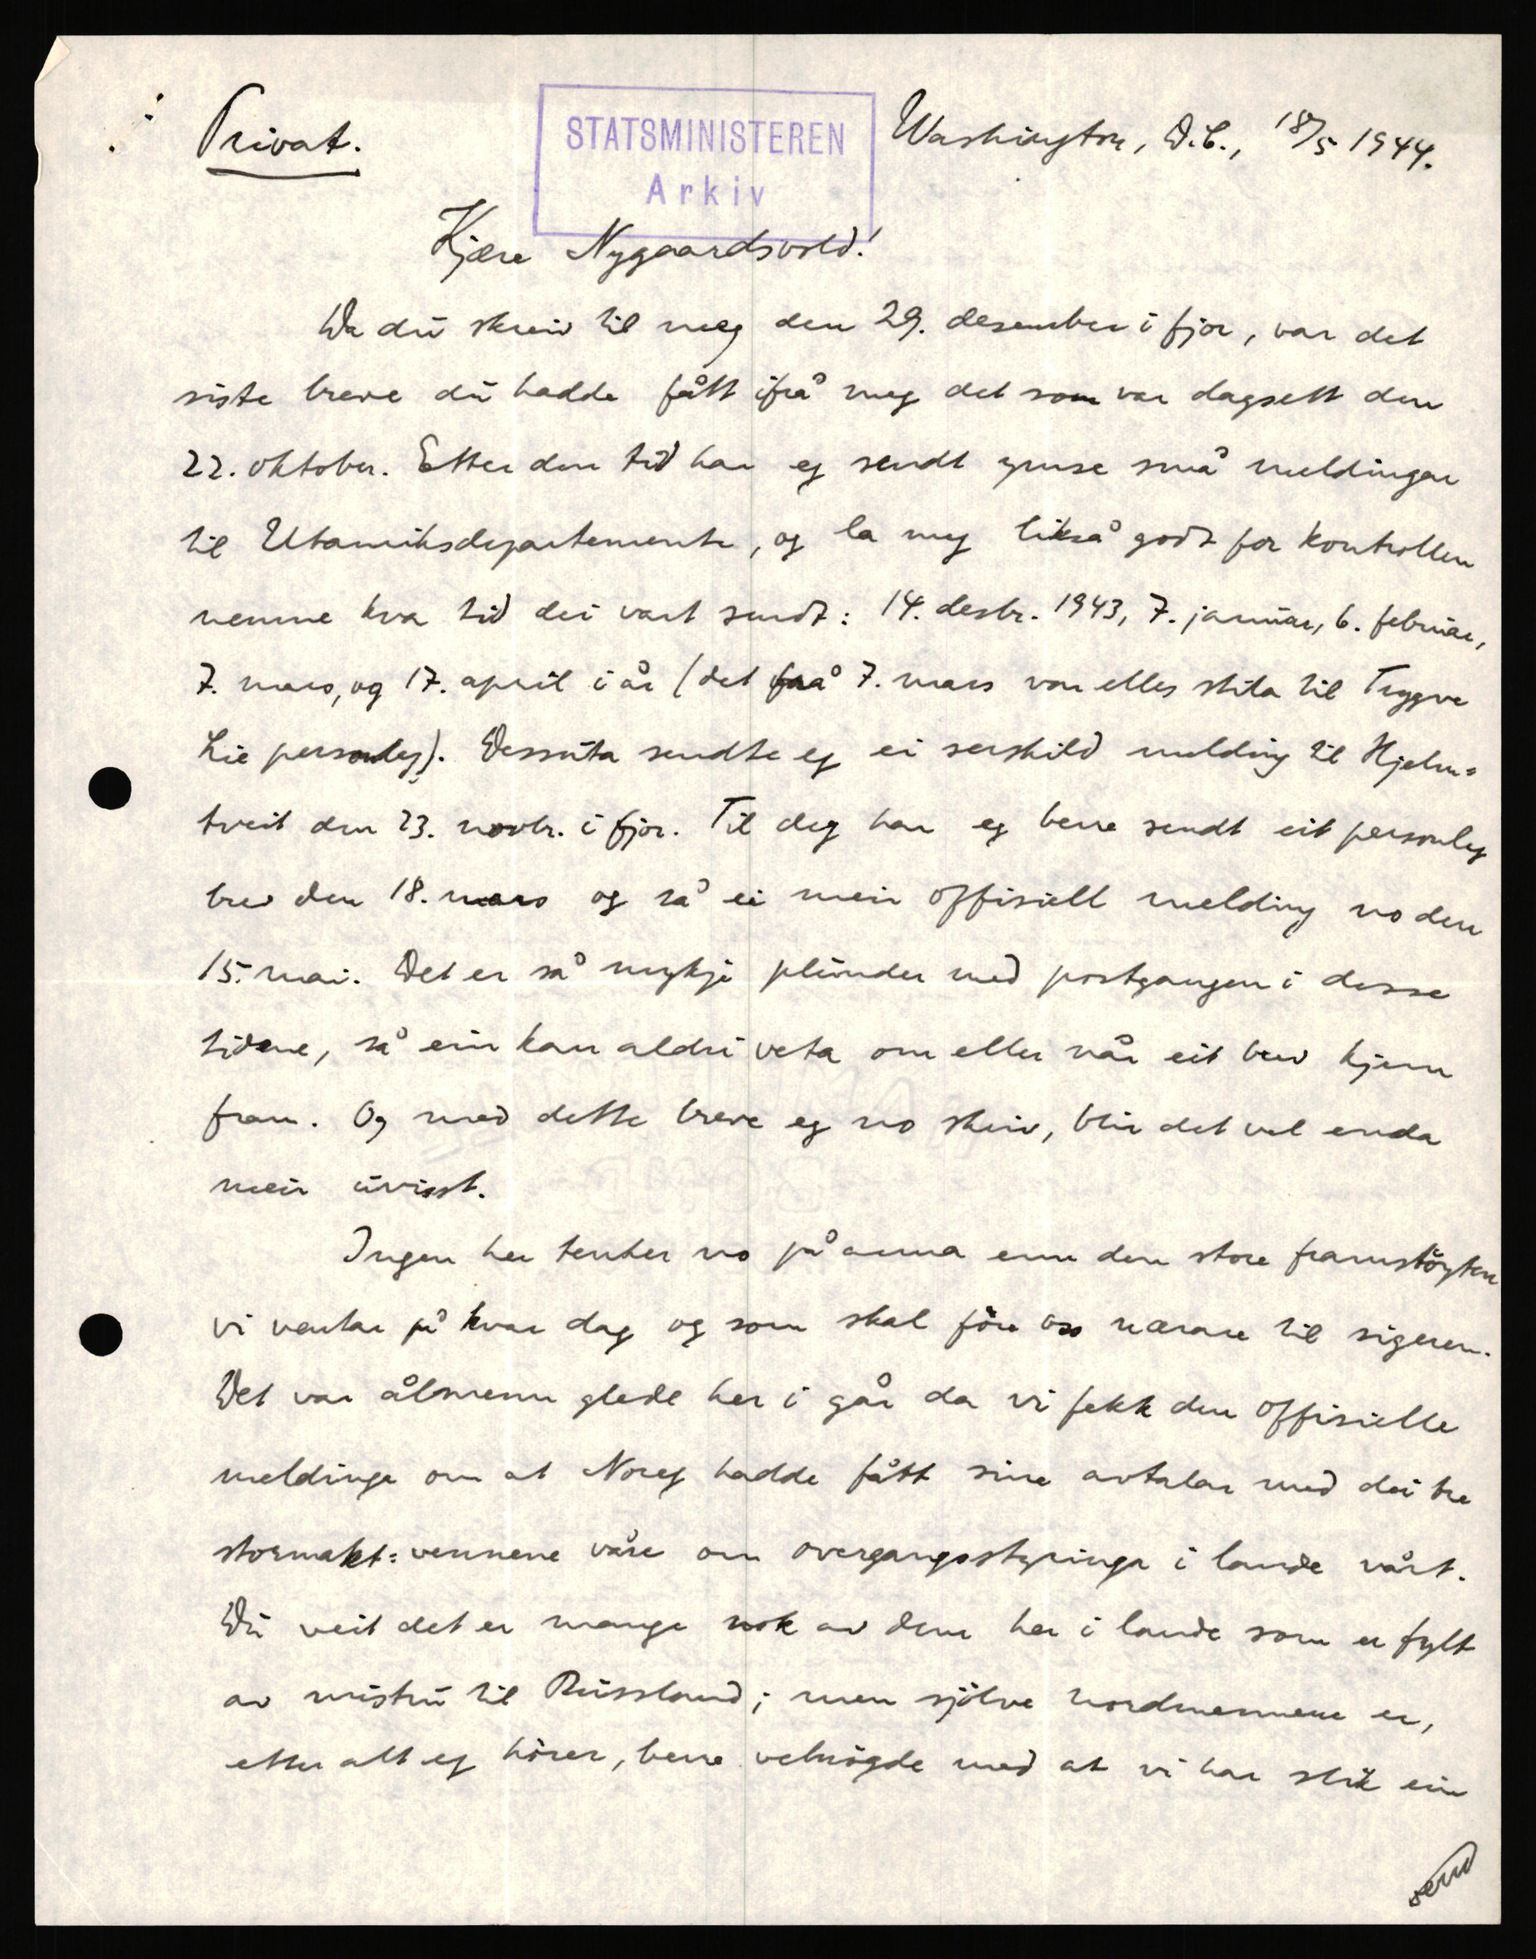 Privat.
STATSMINISTEREN
Arkiv
Washington, D.C., 18/5 1944.
Kjære Nygaardsvold!
Da du skreiv til meg den 29. desember i fjor, var det
siste breve du hadde fått ifrå meg det som var dagsett den
22. oktober. Etter den tid har eg sendt ymse små meldingar
til Utanriksdepartemente, og la meg likså godt for kontrollen
nemne kva tid dei vart sendt: 14. desbr. 1943, 7. januar, 6. februar,
7. mars, og 17. april i år (det frå 7. mars var elles stila til Trygve
Lie personleg). Dessuta sendte eg ei serskild melding til Hjelm-
tveit den 23. novbr. i fjor. Til deg har eg berre sendt eit personleg
brev den 18. mars og så ei meir offisiell melding no den
15. mai. Det er så mykje plunder med postgangen i desse
tidene, så ein kan aldri veta om eller når eit brev kjem
fram. Og med dette breve eg no skriv, blir det vel enda
meir uvisst.
Ingen her tenker no på anna enn den store framstöyten
vi ventar på kvar dag og som skal före oss nærare til sigeren.
Det var ålmenn glede her i går da vi fekk den offisielle
meldinga om at Noreg hadde fått sine avtalar med dei tre
stormakt-vennene våre om overgangsstyringa i lande vårt.
Du veit det er mange nok av dem her i lande som er fylt
av mistru til Russland; men sjölve nordmennene er,
etter alt eg hörer, berre velnögde med at vi har slik ein